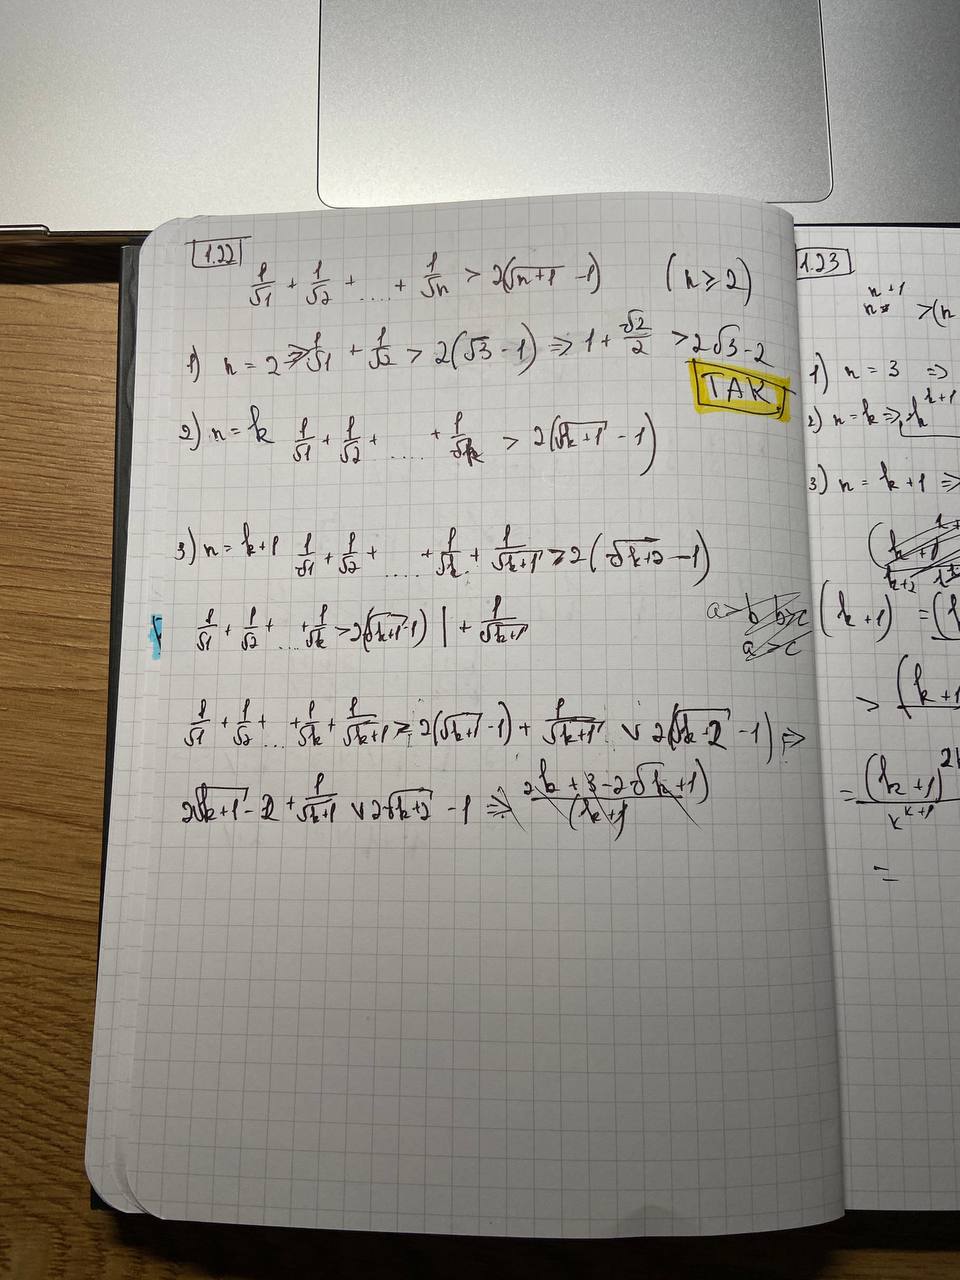 1.22
1/√1 + 1/√2 + .... + 1/√n > 2(√n+1 - 1) (n ≥ 2)
1) n = 2 ⇒ 1/√1 + 1/√2 > 2(√3 - 1) ⇒ 1 + √2/2 > 2√3 - 2
TAK
2) n = k 1/√1 + 1/√2 + .... + 1/√k > 2(√k+1 - 1)
3) n = k+1 1/√1 + 1/√2 + .... + 1/√k + 1/√k+1 > 2(√k+2 - 1)
1/√1 + 1/√2 + ... + 1/√k > 2(√k+1 - 1) | + 1/√k+1
a > b b > c
a > c
1/√1 + 1/√2 + ... + 1/√k + 1/√k+1 > 2(√k+1 - 1) + 1/√k+1 ∨ 2(√k+2 - 1) ⇒
2√k+1 - 2 + 1/√k+1 ∨ 2√k+2 - 1 ⇒ 2k + 3 - 2√k+1)/(k+1)
1.23
n^n+1 > (n
1) n = 3 ⇒
2) n = k ⇒ k^k+1
3) n = k+1 ⇒
(k+1) = (k
> (k+1
= (k+1)^2k
k^k+1
=